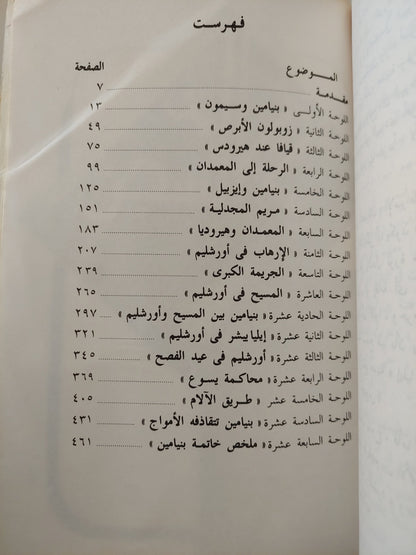 فهرست
الموضوع الصفحة
مقدمة ٧
اللوحة الأولى « بنيامين وسيمون » ١٣
اللوحة الثانية « زوبولون الأبرص » ٤٩
اللوحة الثالثة « قيافا عند هيرودس » ٧٥
اللوحة الرابعة « الرحلة إلى المعمدان » ٩٩
اللوحة الخامسة « بنيامين وإيزبيل » ١٢٥
اللوحة السادسة « مريم المجدلية » ١٥١
اللوحة السابعة « المعمدان وهيروديا » ١٨٣
اللوحة الثامنة « الإرهاب فى أورشليم » ٢٠٧
اللوحة التاسعة « الجريمة الكبرى » ٢٣٩
اللوحة العاشرة « المسيح فى أورشليم » ٢٦٥
اللوحة الحادية عشرة « بنيامين بين المسيح وأورشليم » ٢٩٧
اللوحة الثانية عشرة « إيليا يبشر فى أورشليم » ٣٢١
اللوحة الثالثة عشرة « أورشليم فى عيد الفصح » ٣٤٥
اللوحة الرابعة عشرة « محاكمة يسوع » ٣٦٩
اللوحة الخامسة عشر « طريق الآلام » ٤٠٥
اللوحة السادسة عشرة « بنيامين تتقاذفه الأمواج » ٤٣١
اللوحة السابعة عشرة « ملخص خاتمة بنيامين » ٤٦١